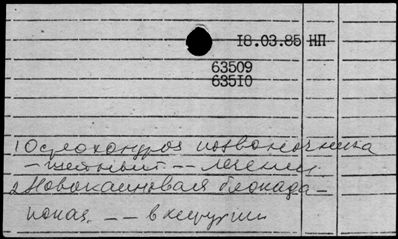 18.03.85 НП
63509
63510
1 Остеохондроз позвоночника
- шейный -- лечение
2 Новокаиновая блокада -
-- в хирургии